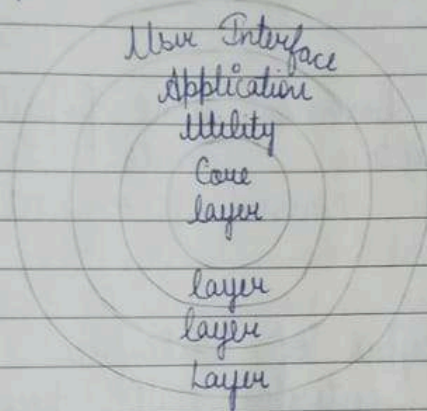 User Interface
Application
Utility
Core
layer
layer
layer
Layer